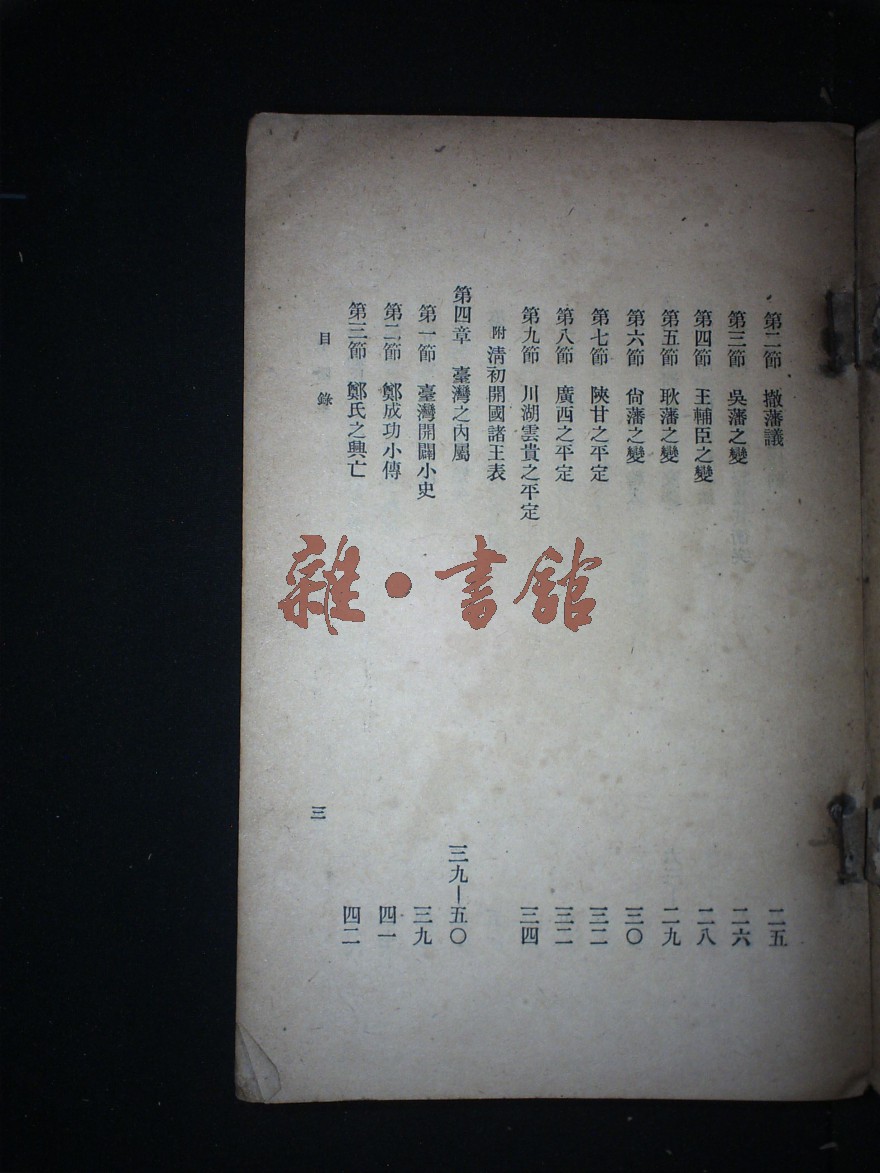 第二節 撤藩議 二五
第三節 吳藩之變 二六
第四節 王輔臣之變 二八
第五節 耿藩之變 二九
第六節 尙藩之變 三〇
第七節 陝甘之平定 三二
第八節 廣西之平定 三二
第九節 川湖雲貴之平定 三四
附 淸初開國諸王表
第四章 臺灣之內屬 三九—五〇
第一節 臺灣開闢小史 三九
第二節 鄭成功小傳 四一
第三節 鄭氏之興亡 四二
目錄 三
雜·書館